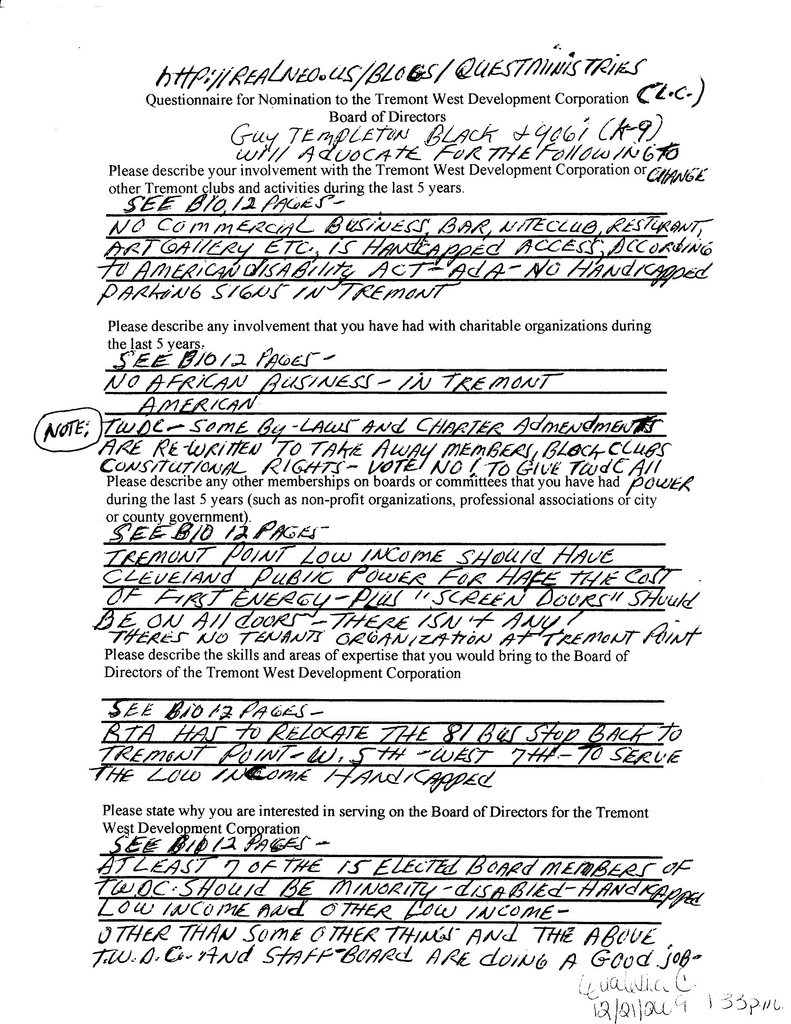 http://REALNEO.US/BLOGS/QUESTMINISTRIES
Questionnaire for Nomination to the Tremont West Development Corporation (L.C.)
Board of Directors
GUY TEMPLETON BLACK + YOGI (K-9)
WILL ADVOCATE FOR THE FOLLOWING TO
Please describe your involvement with the Tremont West Development Corporation or CHANGE
other Tremont clubs and activities during the last 5 years.
SEE BIO, 12 PAGES-
NO COMMERCIAL BUSINESS, BAR, NITECLUB, RESTURANT,
ART GALLERY ETC., IS HANDICAPPED ACCESS, ACCORDING
TO AMERICAN DISABILITY ACT-ADA-NO HANDICAPPED
PARKING SIGNS IN TREMONT
Please describe any involvement that you have had with charitable organizations during
the last 5 years.
SEE BIO 12 PAGES-
NO AFRICAN BUSINESS- IN TREMONT
AMERICAN
NOTE: TWDC- SOME BY-LAWS AND CHARTER ADMENDMENTS
ARE RE-WRITTEN TO TAKE AWAY MEMBERS, BLOCK CLUBS
CONSITUTIONAL RIGHTS- VOTE NO! TO GIVE TWDC ALL
Please describe any other memberships on boards or committees that you have had POWER
during the last 5 years (such as non-profit organizations, professional associations or city
or county government).
SEE BIO 12 PAGES-
TREMONT POINT LOW INCOME SHOULD HAVE
CLEVELAND PUBLIC POWER FOR HAFE THE COST
OF FIRST ENERGY-PLUS "SCREEN DOORS" SHOULD
BE ON ALL DOORS-THERE ISN'T ANY!
THERES NO TENANTS ORGANIZATION AT TREMONT POINT
Please describe the skills and areas of expertise that you would bring to the Board of
Directors of the Tremont West Development Corporation
SEE BIO 12 PAGES-
RTA HAS TO RELOCATE THE 81 BUS STOP BACK TO
TREMONT POINT-W. 5TH -WEST 7TH- TO SERVE
THE LOW INCOME HANDICAPPED
Please state why you are interested in serving on the Board of Directors for the Tremont
West Development Corporation
SEE BIO 12 PAGES-
AT LEAST 7 OF THE 15 ELECTED BOARD MEMBERS OF
TWDC. SHOULD BE MINORITY-DISABLED-HANDICAPPED
LOW INCOME AND OTHER LOW INCOME-
OTHER THAN SOME OTHER THINGS AND THE ABOVE
T.W.D.C. AND STAFF-BOARD ARE DOING A GOOD JOB-
12/21/2009 1:33 pm